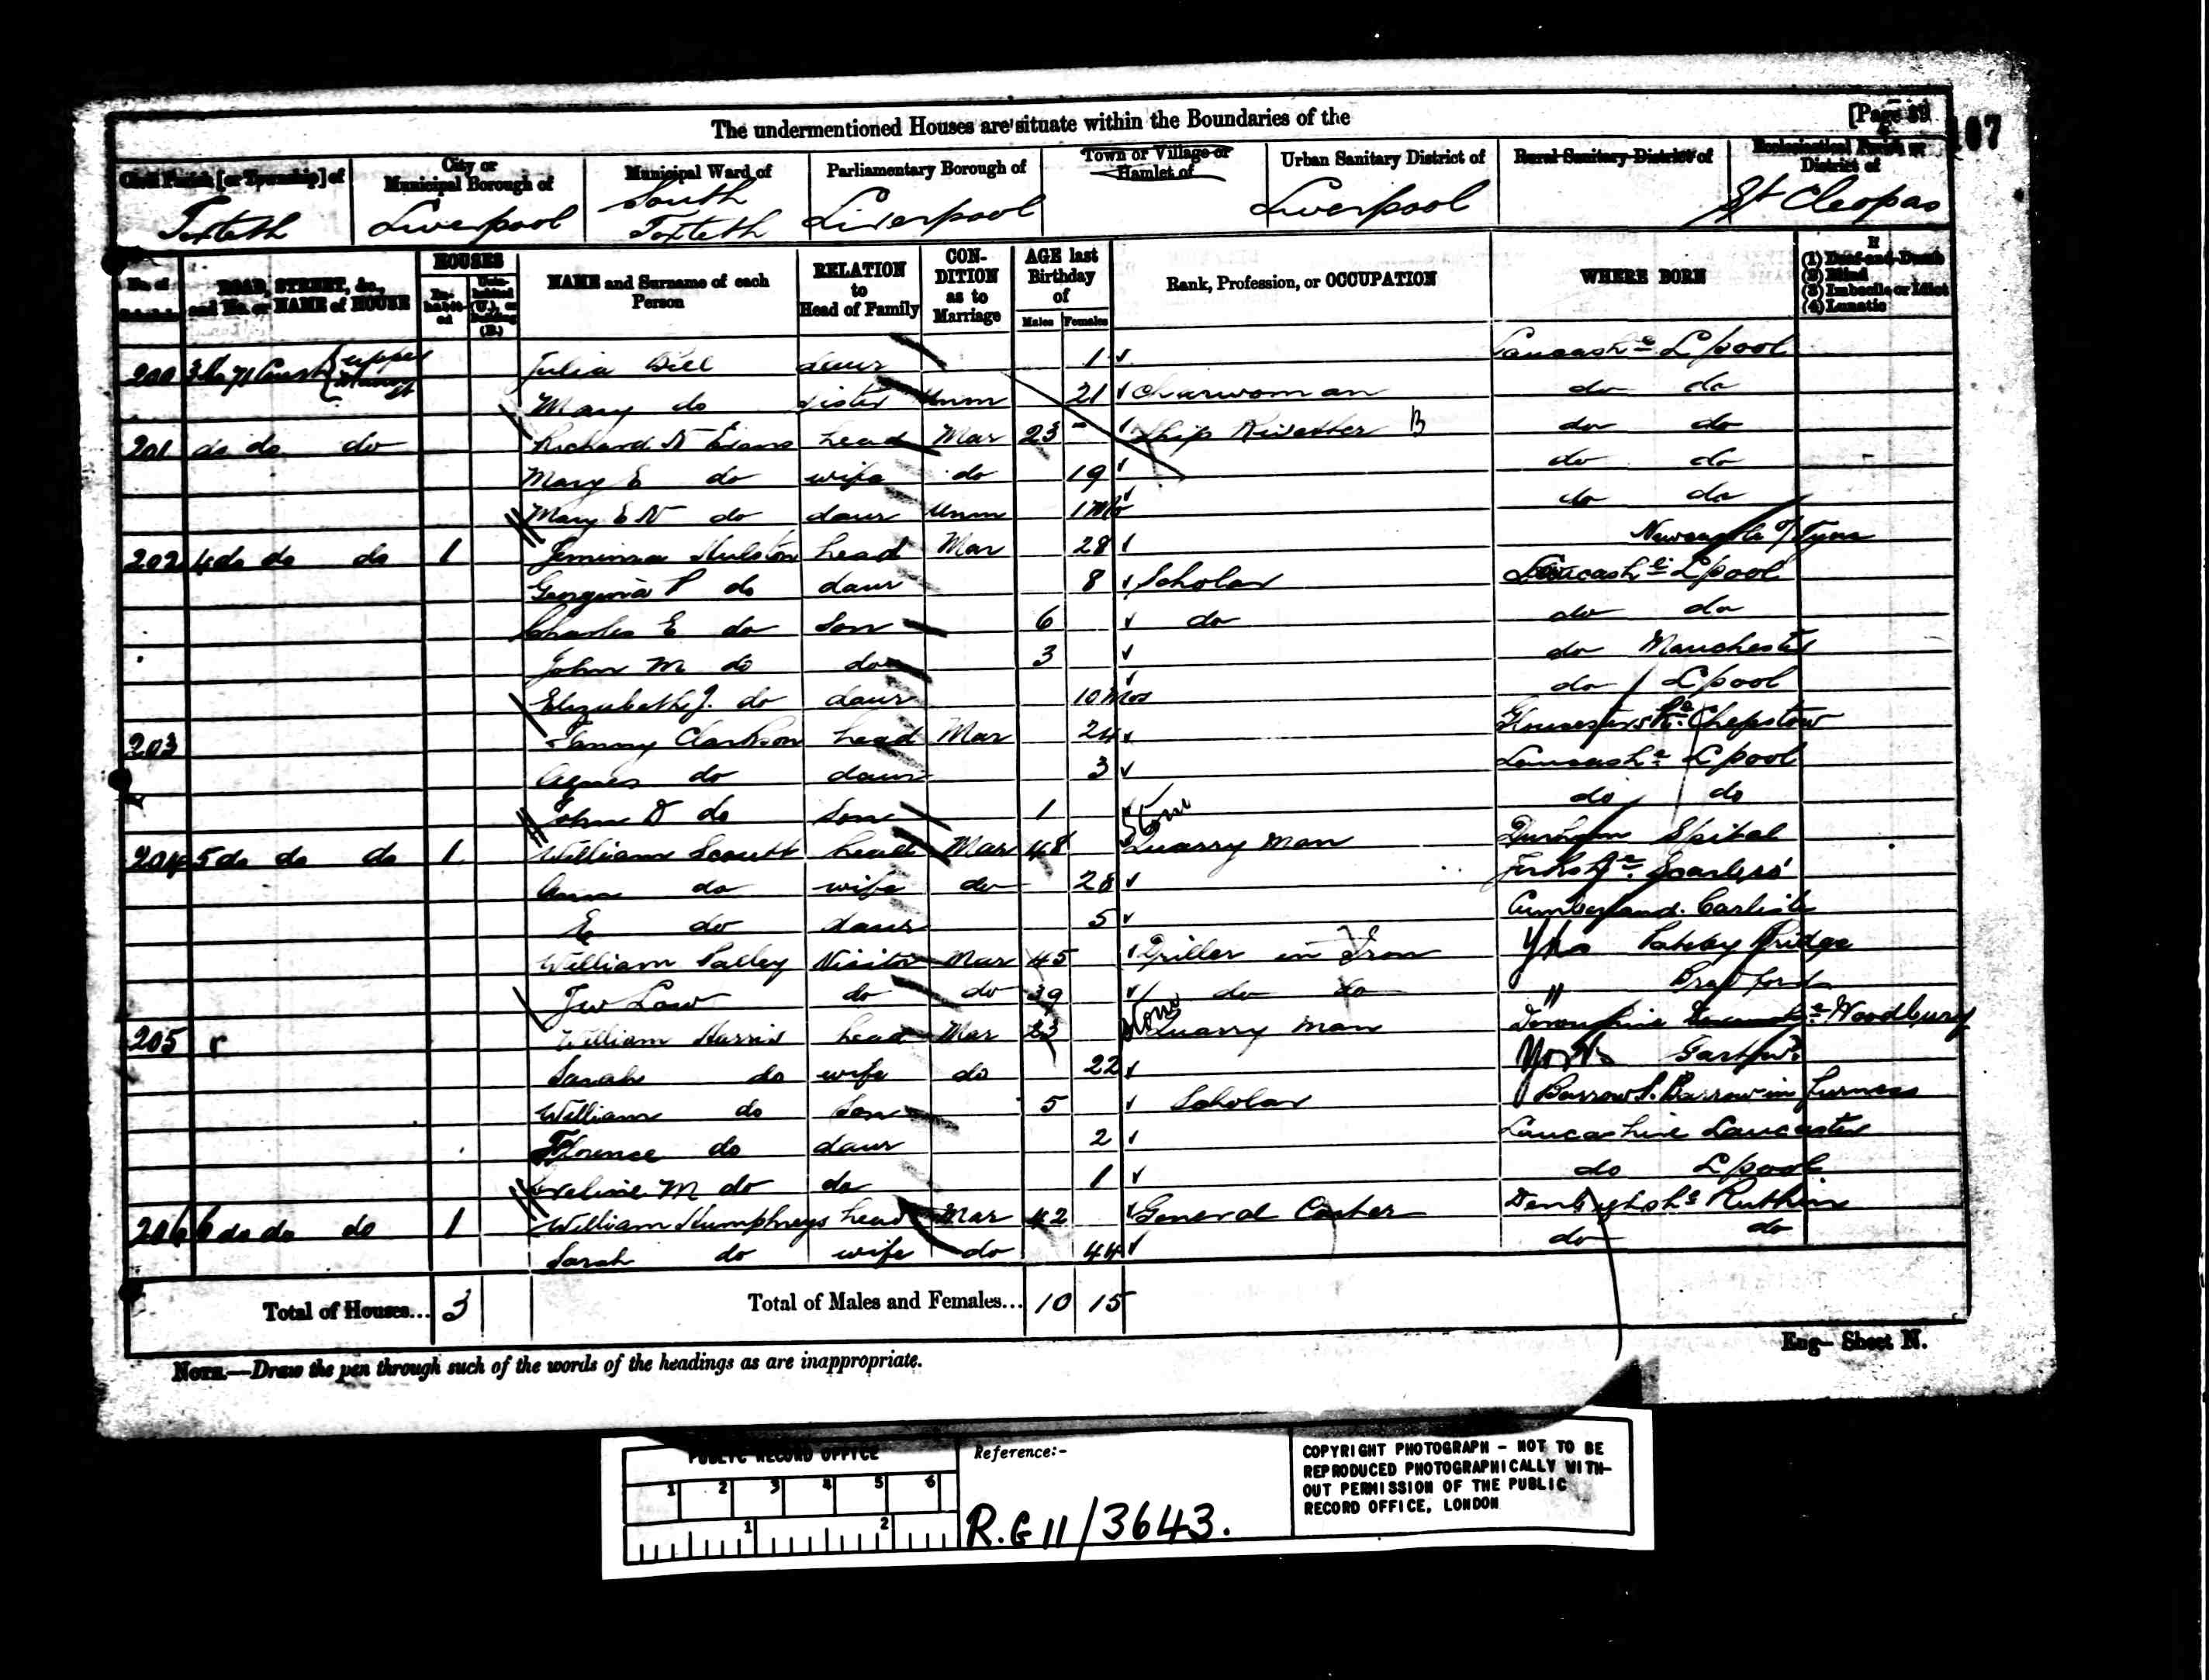 The undermentioned Houses are situate within the Boundaries of the
[Page 39
107
Civil Parish [or Township] of
City or Municipal Borough of
Municipal Ward of
Parliamentary Borough of
Town or Village or Hamlet of
Urban Sanitary District of
Rural Sanitary District of
Ecclesiastical Parish or District of
Toxteth
Liverpool
South Toxteth
Liverpool
Liverpool
St Cleopas
No. of Schedule
ROAD, STREET, &c., and No. or NAME of HOUSE
HOUSES
Inhabited
Uninhabited (U.), or Building (B.)
NAME and Surname of each Person
RELATION to Head of Family
CONDITION as to Marriage
AGE last Birthday of
Males
Females
Rank, Profession, or OCCUPATION
WHERE BORN
(1) Deaf-and-Dumb
(2) Blind
(3) Imbecile or Idiot
(4) Lunatic
200 3 Court upper Julia daur 1 Lancashe L'pool
Mary do sister Unm 21 Charwoman do do
201 do do do Richard N Evans head Mar 23 Ship Rivetter B do do
Mary E do wife do 19 do do
Mary E N do daur Unm 1 Mo do do
202 4 do do do 1 Jemima Hulston head Mar 28 Newcastle o/ Tyne
Georgina P do daur 8 Scholar Lancashe L'pool
Charles E do Son 6 do do do
John M do do 3 do Manchester
Elizabeth J. do daur 10 Mos do L'pool
203 Fanny Clarkson head Mar 24 Chepstow
Agnes do daur 3 Lancashe L'pool
John D do Son 1 do do
204 5 do do do 1 William Scoutt head Mar 48 Stone Quarry Man Durham Spital
Ann do wife do 28
E do daur 5 Cumberland. Carlisle
William Palley Visitor Mar 45 Driller in Iron Yks Pateley Bridge
Jno Law do do 39 do do " Bradford
205 William Harris head Mar 23 Stone Quarry Man Devonshire Woodbury
Sarah do wife do 22 Yorks
William do Son 5 Scholar Barrow in Furness
Florence do daur 2 Lancashire Lancaster
Eveline M do do 1 do L'pool
206 6 do do do 1 William Humphreys head Mar 42 General Carter Denbighshe Ruthin
Sarah do wife do 44 do do
Total of Houses... 3
Total of Males and Females... 10 15
NOTE.—Draw the pen through such of the words of the headings as are inappropriate.
Eng— Sheet N.
PUBLIC RECORD OFFICE
1 2 3 4 5 6
1 2
Reference:-
R.G 11/3643.
COPYRIGHT PHOTOGRAPH - NOT TO BE
REPRODUCED PHOTOGRAPHICALLY WITH-
OUT PERMISSION OF THE PUBLIC
RECORD OFFICE, LONDON